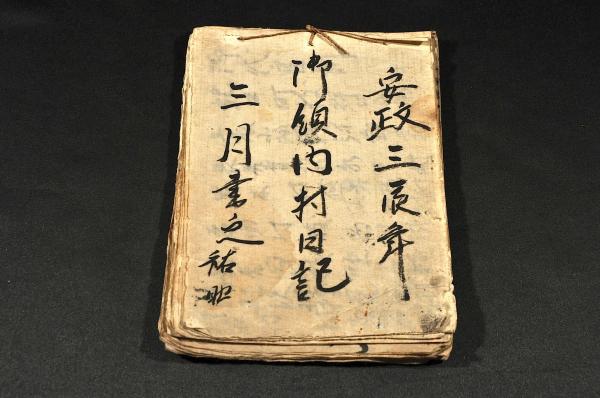 安政三辰年
御領内村日記
三月書之祐